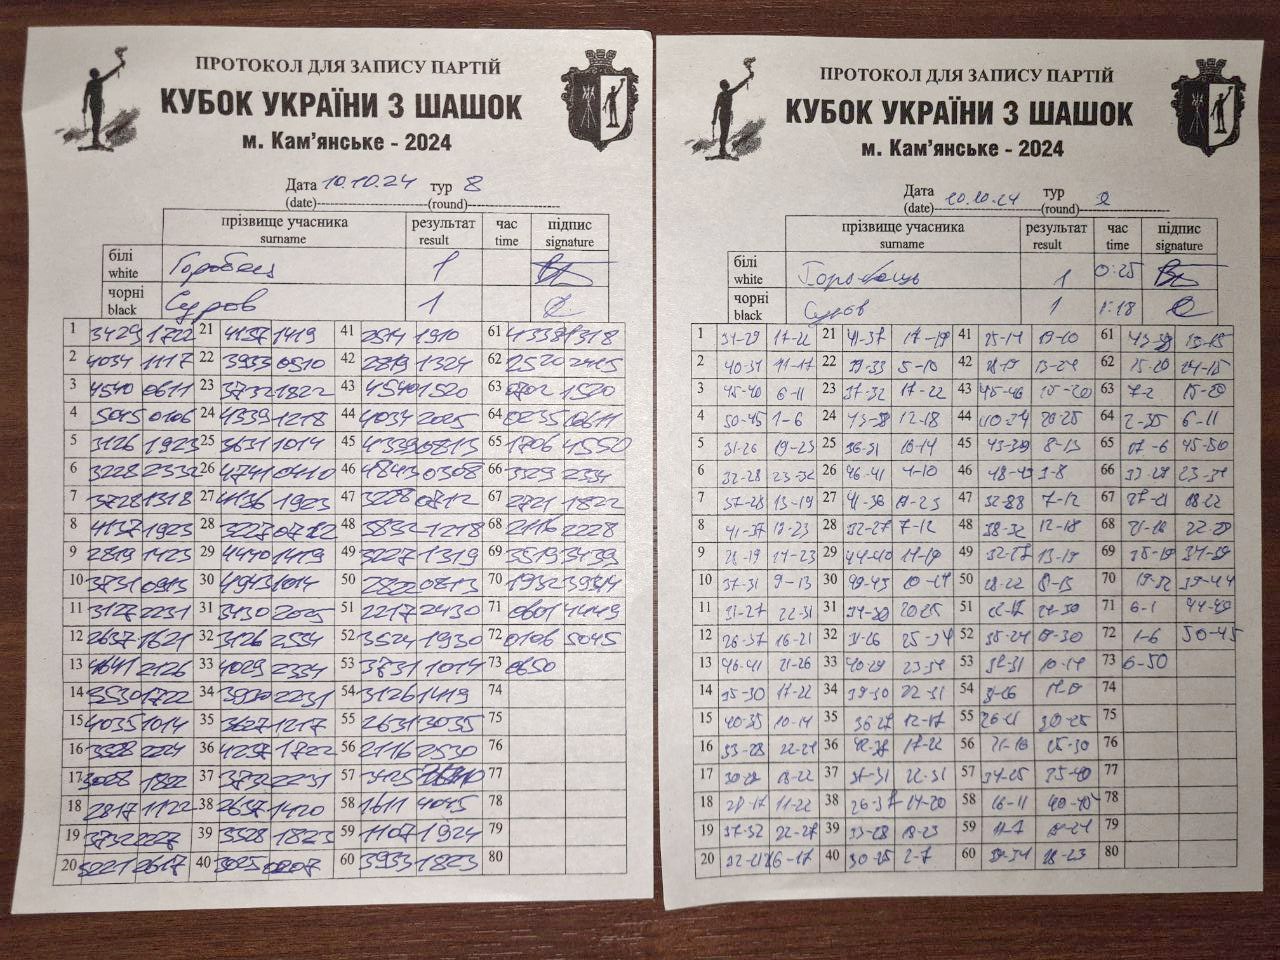 ПРОТОКОЛ ДЛЯ ЗАПИСУ ПАРТІЙ
КУБОК УКРАЇНИ З ШАШОК
м. Кам’янське - 2024
Дата 10.10.24 тур 8
(date) (round)
прізвище учасника результат час підпис
surname result time signature
білі Горобец 1
white
чорні Суров 1
black
1 3429 1722 21 4137 1419 41 2514 1910 61 4339 1318
2 4034 1117 22 3933 0510 42 2819 1324 62 2520 2415
3 4540 0611 23 3732 1822 43 4540 1520 63 0702 1520
4 5045 0106 24 4339 1218 44 4034 2025 64 0235 0611
5 3126 1923 25 3631 1014 45 4339 0813 65 1706 4550
6 3228 2332 26 4741 0410 46 4843 0308 66 3329 2334
7 3728 1318 27 4136 1923 47 3228 0712 67 2721 1822
8 4137 1923 28 3227 0712 48 3832 1218 68 2116 2228
9 2819 1423 29 4440 1419 49 3227 1319 69 3519 3439
10 3731 0913 30 4943 1014 50 2822 0813 70 1932 3944
11 3127 2231 31 3430 2025 51 2217 2430 71 0601 4449
12 2637 1621 32 3126 2534 52 3524 1930 72 0106 5045
13 4641 2126 33 4029 2334 53 3731 1014 73 0650
14 3530 1722 34 3930 2231 54 3126 1419 74
15 4035 1014 35 3627 1217 55 2631 3035 75
16 3328 2224 36 4237 1722 56 2116 2530 76
17 1822 37 3732 2231 57 3425 77
18 2817 1122 38 2637 1420 58 1611 4045 78
19 3732 2227 39 3328 1823 59 1107 1924 79
20 3221 2617 40 3025 0207 60 3933 1823 80
ПРОТОКОЛ ДЛЯ ЗАПИСУ ПАРТІЙ
КУБОК УКРАЇНИ З ШАШОК
м. Кам’янське - 2024
Дата 10.10.24 тур
(date) (round)
прізвище учасника результат час підпис
surname result time signature
білі 1 0:25
white
чорні Суров 1 1:18
black
1 34-29 17-22 21 41-37 14-19 41 25-14 19-10 61 43-39 13-18
2 40-34 11-17 22 39-33 5-10 42 28-19 13-24 62 25-20 24-15
3 45-40 6-11 23 37-32 17-22 43 45-40 15-20 63 7-2 15-20
4 50-45 1-6 24 43-39 12-18 44 40-34 20-25 64 2-35 6-11
5 31-26 19-23 25 36-31 10-14 45 43-39 8-13 65 17-6 45-50
6 32-28 23-32 26 46-41 4-10 46 48-43 3-8 66 33-29 23-34
7 37-28 13-19 27 41-36 19-23 47 32-28 7-12 67 27-21 18-22
8 41-37 19-23 28 32-27 7-12 48 38-32 12-18 68 21-16 22-28
9 28-19 14-23 29 44-40 14-19 49 32-27 13-19 69 35-19 34-39
10 37-31 9-13 30 49-43 10-14 50 28-22 8-13 70 19-32 39-44
11 31-27 22-31 31 34-30 20-25 51 22-17 24-30 71 6-1 44-49
12 26-37 16-21 32 31-26 25-34 52 35-24 19-30 72 1-6 50-45
13 46-41 21-26 33 40-29 23-34 53 37-31 10-14 73 6-50
14 35-30 17-22 34 39-30 22-31 54 31-26 14-19 74
15 40-35 10-14 35 36-27 12-17 55 26-21 30-25 75
16 33-28 22-24 36 42-37 17-22 56 21-16 25-30 76
17 18-22 37 37-31 22-31 57 34-25 35-40 77
18 28-17 11-22 38 26-37 14-20 58 16-11 40-45 78
19 37-32 22-27 39 33-28 18-23 59 11-7 19-24 79
20 32-21 26-17 40 30-25 2-7 60 39-34 18-23 80